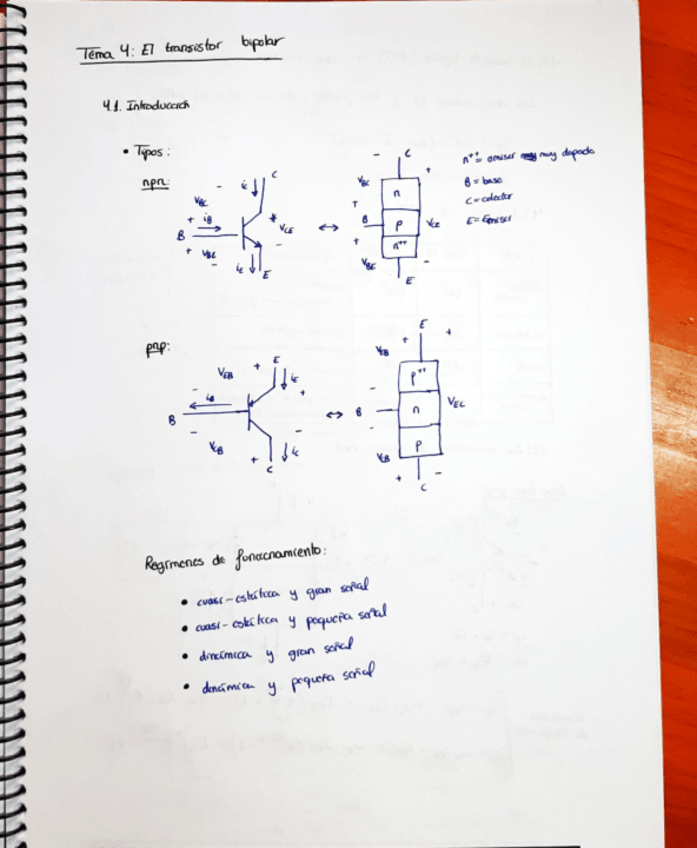 Tema 4: El transistor bipolar
4.1. Introducción
• Tipos:
npn:
C
- ic
VBC
+ iB
B
+ VBE
-
+
VCE
-
iE
E
↔
- C
+
VBC
n
+
B
p
VCE
+
n++
VBE
-
E
n++ = emisor muy dopado
B = base
C = colector
E = Emisor
pnp:
E
VEB
+
iE
+
-
iB
B
-
VCB
-
+
ic
C
↔
E
+
+
VEB
p++
-
B
n
VEC
-
p
VCB
+
-
C
Regímenes de funcionamiento:
• cuasi-estática y gran señal
• cuasi-estática y pequeña señal
• dinámica y gran señal
• dinámica y pequeña señal